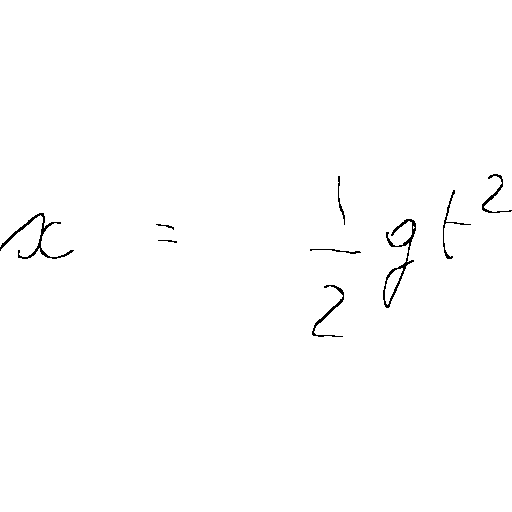 x = 1/2 gt²